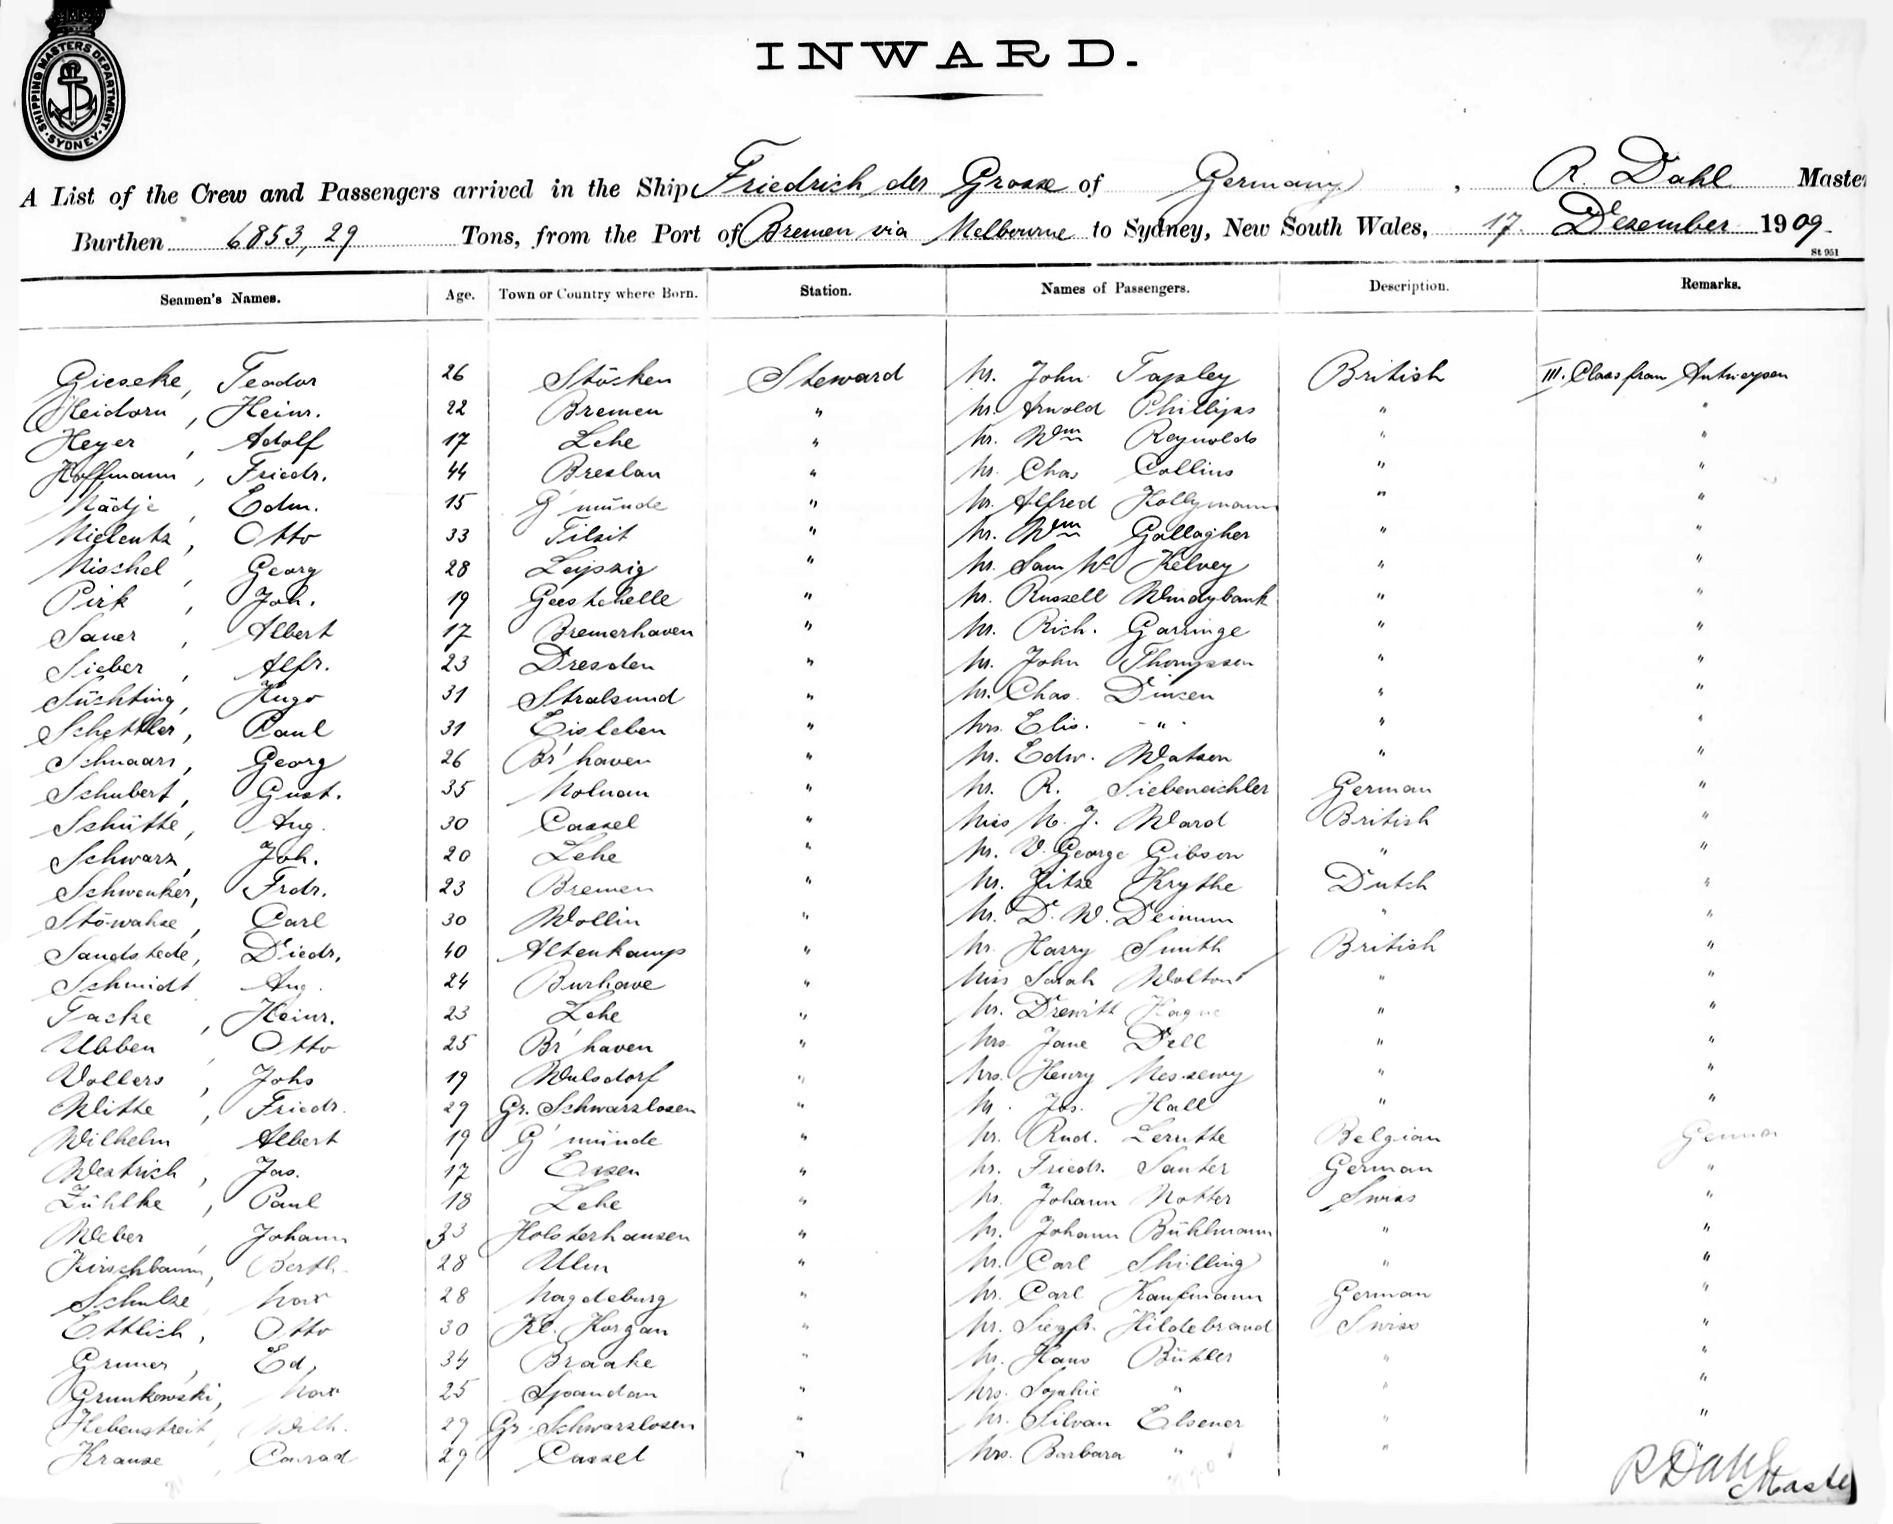 SHIPPING MASTERS DEPARTMENT SYDNEY
INWARD.
A List of the Crew and Passengers arrived in the Ship Friedrich der Grosse of Germany, R. Dahl Master
Burthen 6853,29 Tons, from the Port of Bremen via Melbourne to Sydney, New South Wales, 17. Dezember 1909.
St 951
Seamen's Names. Age. Town or Country where Born. Station. Names of Passengers. Description. Remarks.
Gieseke, Teodor 26 Stöcken Steward Mr. John Tapley British III. Class from Antwerpen
Heidorn, Heinr. 22 Bremen " Mr. Arnold Phillips " "
Heyer, Adolf 17 Lehe " Mr. Wm Reynolds " "
Hoffmann, Friedr. 44 Breslau " Mr. Chas Collins " "
Mädje, Edm. 15 G'münde " Mr. Alfred Hollymann " "
Mielentz, Otto 33 Tilsit " Mr. Wm Gallagher " "
Mischel, Georg 28 Leipzig " Mr. Sam Mc Kelvey " "
Pirk, Joh. 19 Geestehelle " Mr. Russell Windybank " "
Sauer, Albert 17 Bremerhaven " Mr. Rich. Garringe " "
Sieber, Alfr. 23 Dresden " Mr. John Thompson " "
Süchting, Hugo 31 Stralsund " Mr. Chas. Dinsen " "
Schettler, Paul 31 Eisleben " Mrs. Elis. " " "
Schnaars, Georg 26 Br'haven " Mr. Edw. Watson " "
Schubert, Gust. 35 " Mr. R. Siebeneichler German "
Schütte, Aug. 30 Cassel " Miss M. J. Ward British "
Schwarz, Joh. 20 Lehe " Mr. V. George Gibson " "
Schwenker, Frdr. 23 Bremen " Mr. Jitse Krythe Dutch "
Stöwahse, Carl 30 Wollin " Mr. D. W. Deinum " "
Sandstede, Diedr. 40 Altenkamp " Mr. Harry Smith British "
Schmidt Aug. 24 Burhave " Miss Sarah Walton " "
Tacke, Heinr. 23 Lehe " Mr. Drewitt Hague " "
Ubben, Otto 25 Br'haven " Mrs. Jane Dell " "
Vollers, Johs 19 Wulsdorf " Mrs. Henry Messewy " "
Witte, Friedr. 29 Gr. Schwarzlosen " Mr. Jas. Hall " "
Wilhelm Albert 19 G'münde " Mr. Rud. Lerutte Belgian Genua
Westrich, Jas. 17 Essen " Mr. Friedr. Sauter German "
Zühlke, Paul 18 Lehe " Mr. Johann Notter Swiss "
Weber, Johann 33 Holsterhausen " Mr. Johann Bühlmann " "
Kirschbaum, Berth. 28 Ulm " Mr. Carl Shilling " "
Schulze, Max 28 Magdeburg " Mr. Carl Kaufmann German "
Ettlich, Otto 30 Kl. Horgan " Mr. Siegfr. Hildebrand Swiss "
Gruner, Ed. 34 Braake " Mr. Hans Bühler " "
Grunkowski, Max 25 Spandau " Mrs. Sophie " " "
Hebenstreit, Wilh. 29 Gr. Schwarzlosen " Mr. Silvan Elsener " "
Krause, Conrad 29 Cassel " Mrs. Barbara " "
R Dahl Master